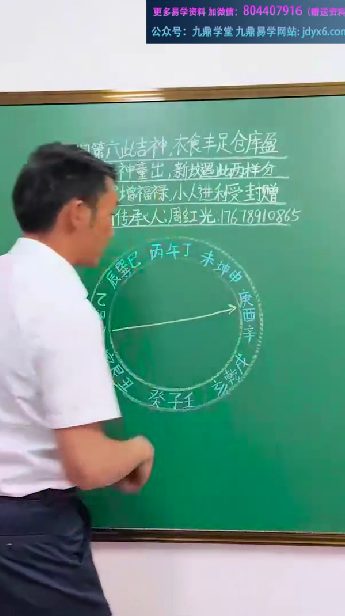 更多易学资料 加微信: 804407916 (赠送资料
公众号: 九鼎学堂 九鼎易学网站: jdyx6.com
第六此吉神,衣食丰足仓库盈
神董出,新坟遇此两样分
增福禄,小人进利受封赠
传承人:周红光:17678910865
辰巽巳 丙午丁 未坤申
乙
庚酉辛
戌乾亥
癸子壬